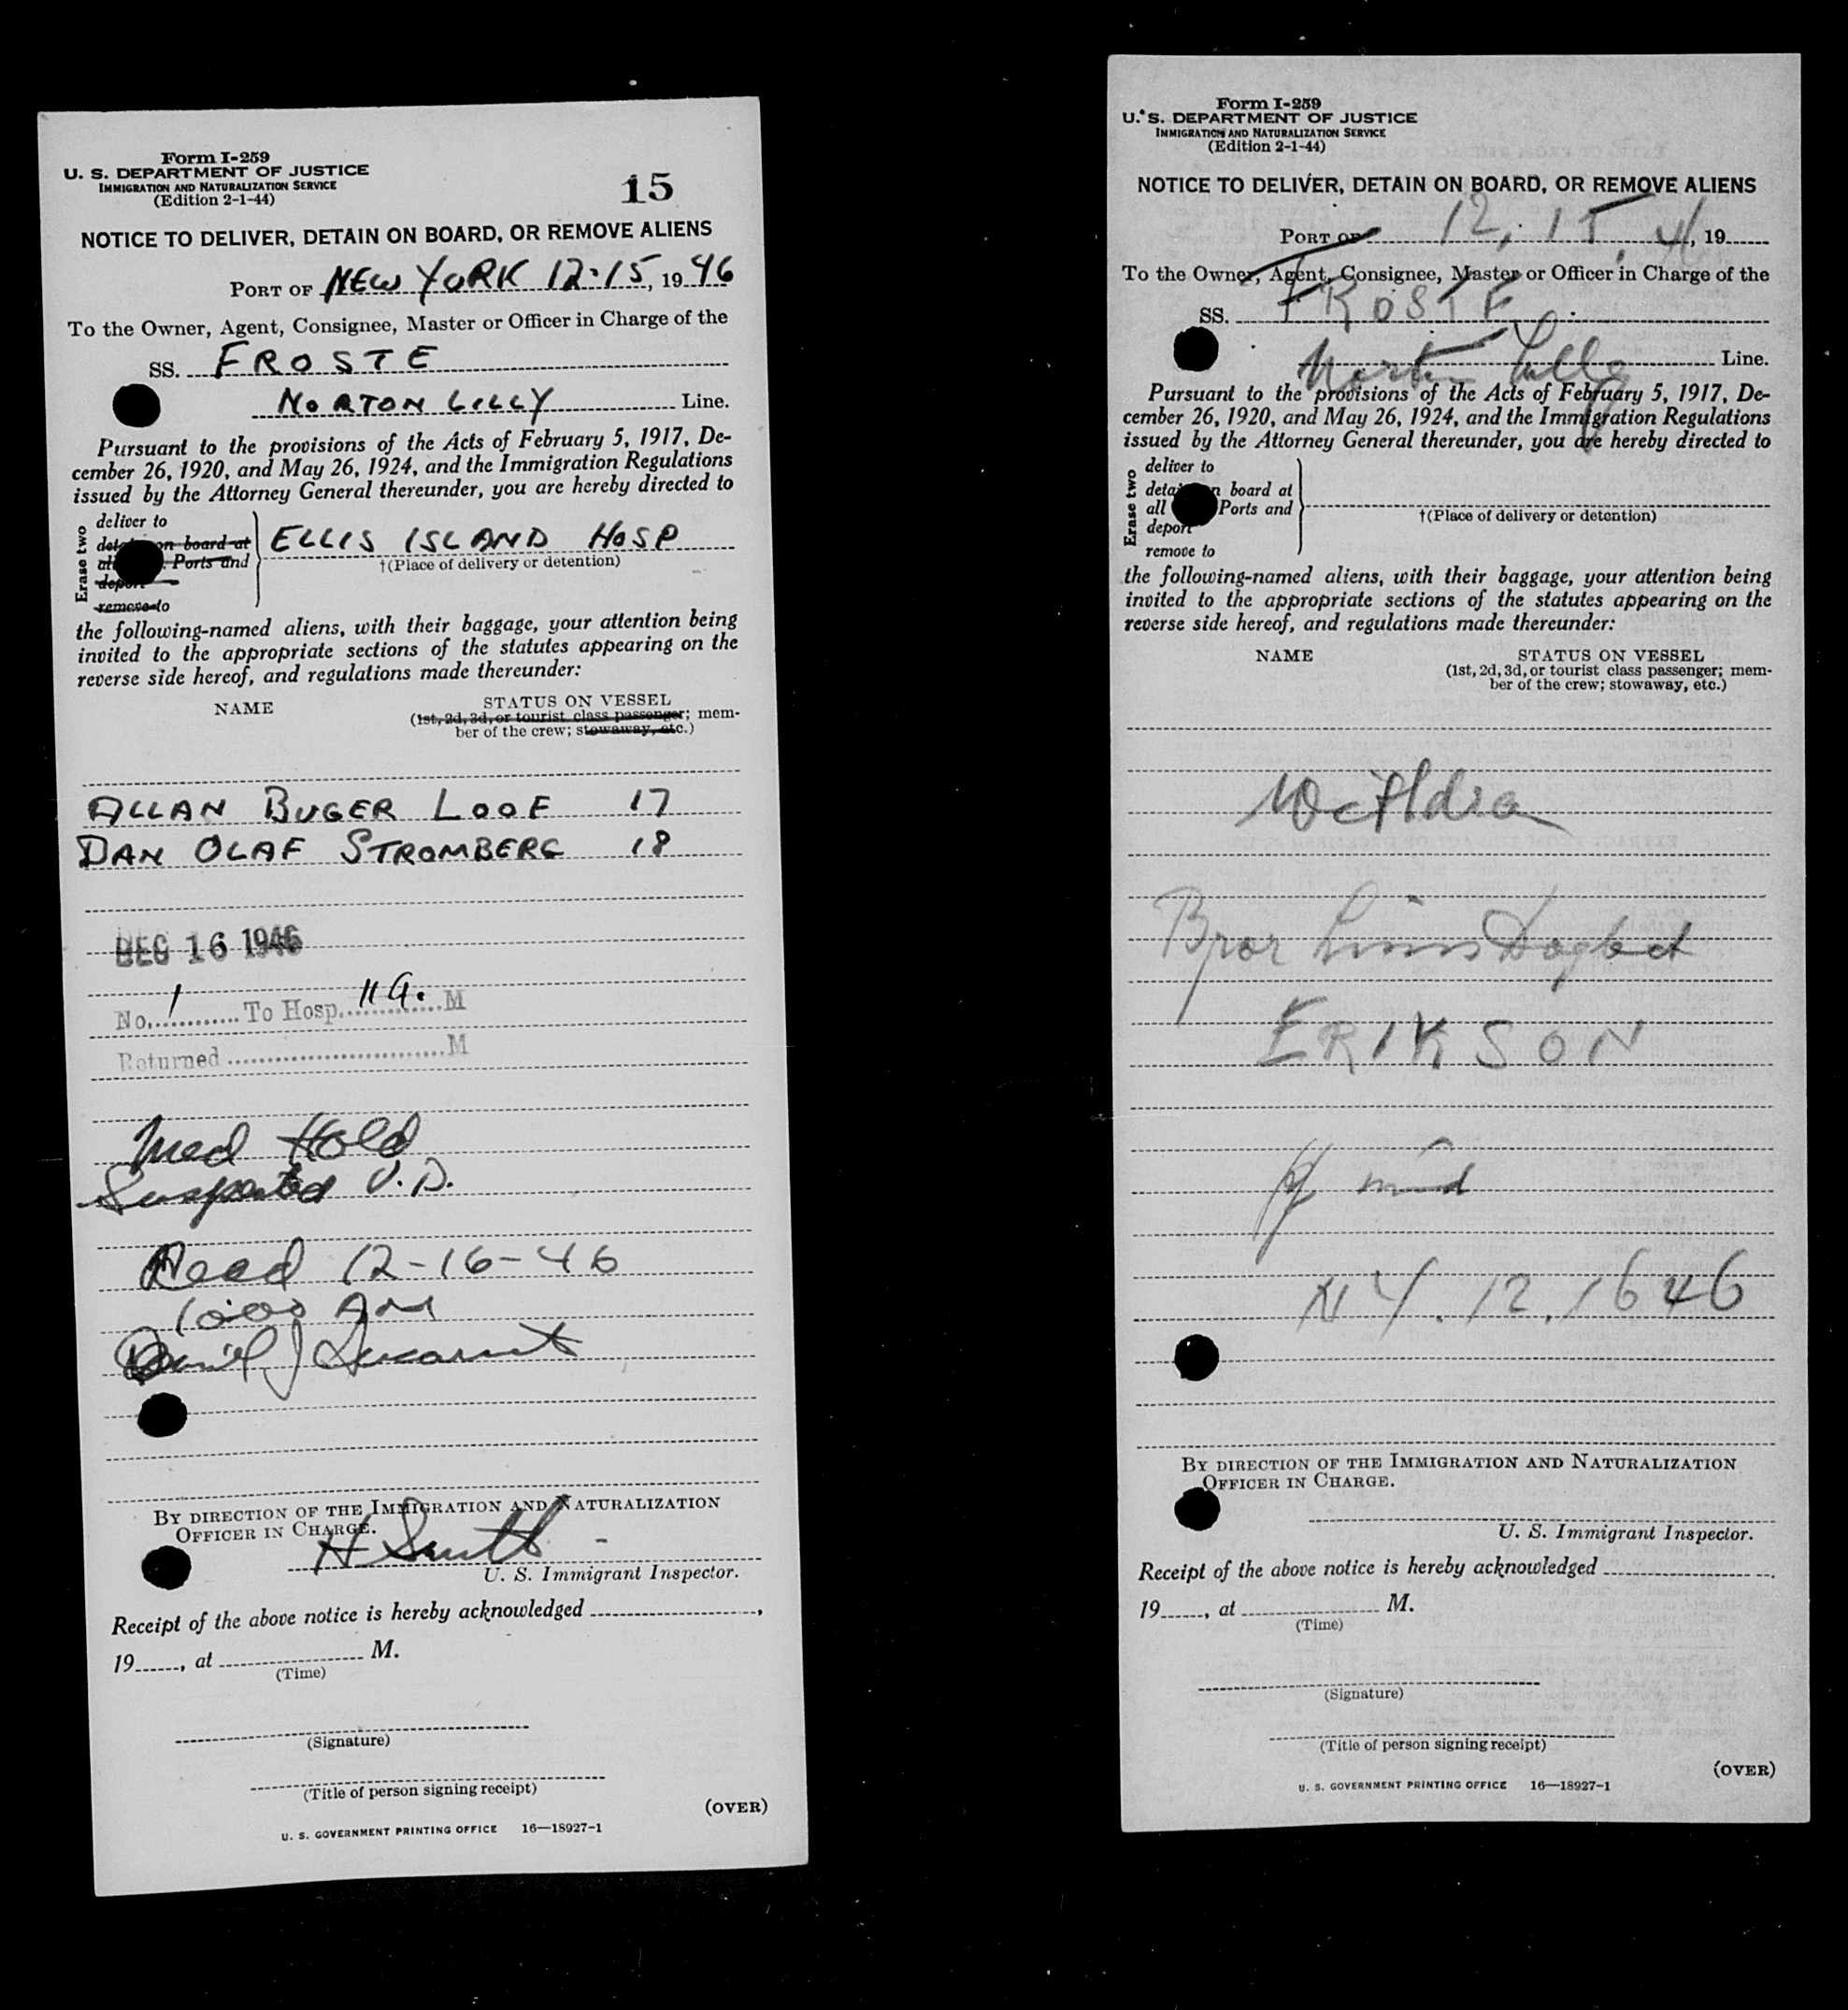 Form I-259
U. S. DEPARTMENT OF JUSTICE
IMMIGRATION AND NATURALIZATION SERVICE
(Edition 2-1-44)
15
NOTICE TO DELIVER, DETAIN ON BOARD, OR REMOVE ALIENS
PORT OF NEW YORK 12-15, 1946
To the Owner, Agent, Consignee, Master or Officer in Charge of the
SS. FROSTE
NORTON LILLY Line.
Pursuant to the provisions of the Acts of February 5, 1917, De-
cember 26, 1920, and May 26, 1924, and the Immigration Regulations
issued by the Attorney General thereunder, you are hereby directed to
Erase two
deliver to
on board at
Ports and
depor
remove to
ELLIS ISLAND HOSP
†(Place of delivery or detention)
the following-named aliens, with their baggage, your attention being
invited to the appropriate sections of the statutes appearing on the
reverse side hereof, and regulations made thereunder:
NAME
STATUS ON VESSEL
(1st, 2d, 3d, or tourist class passenger; mem-
ber of the crew; stowaway, etc.)
ALLAN BUGER LOOF 17
DAN OLAF STROMBERG 18
DEC 16 1946
No. 1 To Hosp. M
Returned M
Med Hold
Suspected V.D.
Recd 12-16-46
10:00 AM
Daniel J
BY DIRECTION OF THE IMMIGRATION AND NATURALIZATION
OFFICER IN CHARGE.
H Smith
U. S. Immigrant Inspector.
Receipt of the above notice is hereby acknowledged
19, at M.
(Time)
(Signature)
(Title of person signing receipt)
(OVER)
U. S. GOVERNMENT PRINTING OFFICE 16—18927-1
Form I-259
U. S. DEPARTMENT OF JUSTICE
IMMIGRATION AND NATURALIZATION SERVICE
(Edition 2-1-44)
NOTICE TO DELIVER, DETAIN ON BOARD, OR REMOVE ALIENS
PORT OF 12, 15, 19
To the Owner, Agent, Consignee, Master or Officer in Charge of the
SS. FROSTE
Norton Lilly Line.
Pursuant to the provisions of the Acts of February 5, 1917, De-
cember 26, 1920, and May 26, 1924, and the Immigration Regulations
issued by the Attorney General thereunder, you are hereby directed to
Erase two
deliver to
board at
all Ports and
deport
remove to
†(Place of delivery or detention)
the following-named aliens, with their baggage, your attention being
invited to the appropriate sections of the statutes appearing on the
reverse side hereof, and regulations made thereunder:
NAME
STATUS ON VESSEL
(1st, 2d, 3d, or tourist class passenger; mem-
ber of the crew; stowaway, etc.)
Bror
ERIKSON
NY. 12.1646
BY DIRECTION OF THE IMMIGRATION AND NATURALIZATION
OFFICER IN CHARGE.
U. S. Immigrant Inspector.
Receipt of the above notice is hereby acknowledged
19, at M.
(Time)
(Signature)
(Title of person signing receipt)
(OVER)
U. S. GOVERNMENT PRINTING OFFICE 16—18927-1